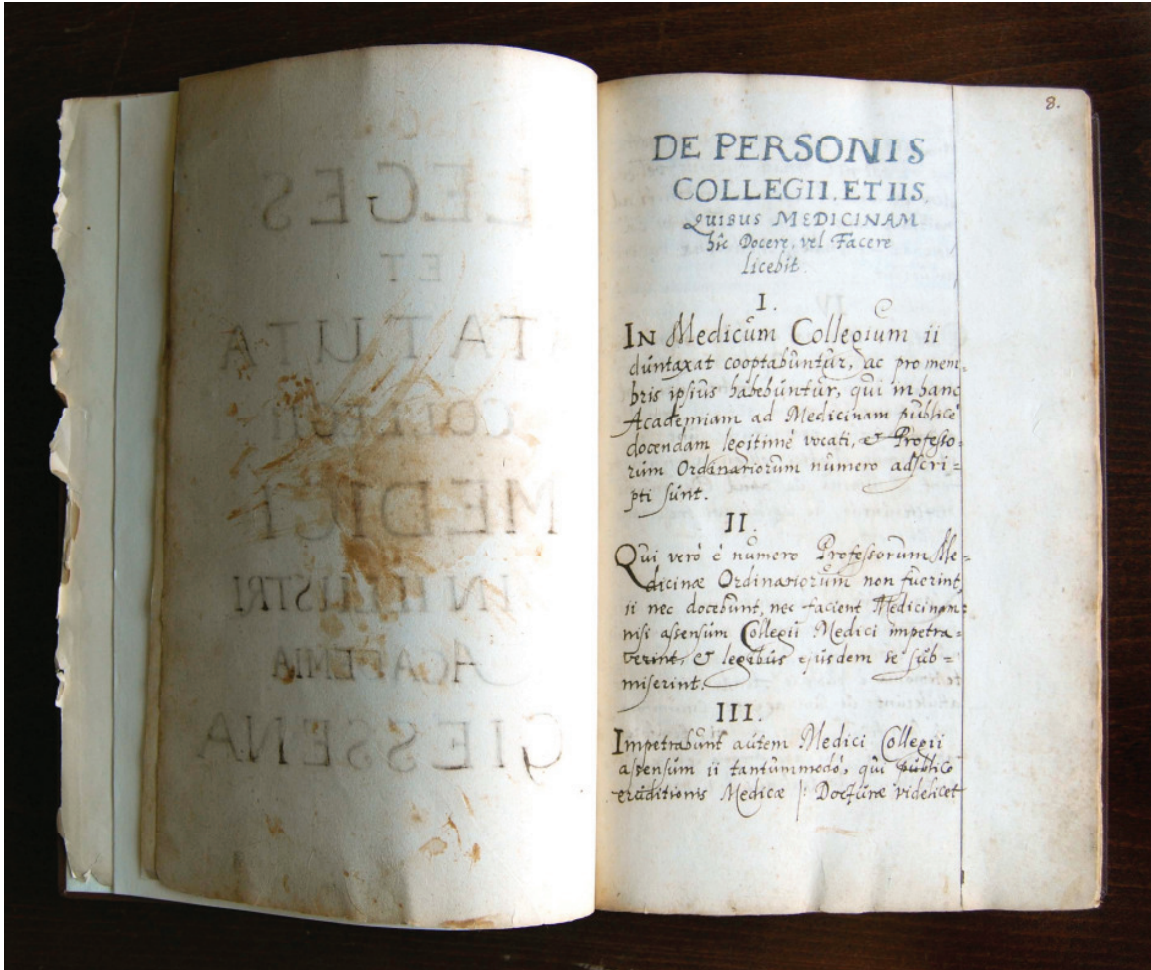 LEGES
ET
STATUTA
COLLEGII
MEDICI
IN ILLUSTRI
ACADEMIA
GIESSENA
8.
DE PERSONIS
COLLEGII. ET IIS,
QUIBUS MEDICINAM
hîc Docere, vel Facere
licebit.
I.
IN Medicum Collegium ii
duntaxat cooptabuntur, ac pro mem=
bris ipsius habebuntur, qui in hanc
Academiam ad Medicinam publicè
docendam legitimè vocati, & Professo=
rum Ordinariorum numero adscri=
pti sunt.
II.
Qui verò è numero Professorum Me=
dicinæ Ordinariorum non fuerint,
ii nec docebunt, nec facient Medicinam:
nisi assensum Collegii Medici impetra=
verint, & legibus ejusdem se sub=
miserint.
III.
Impetrabunt autem Medici Collegii
assensum ii tantummodò, qui publico
eruditionis Medicæ |: Docturæ videlicet